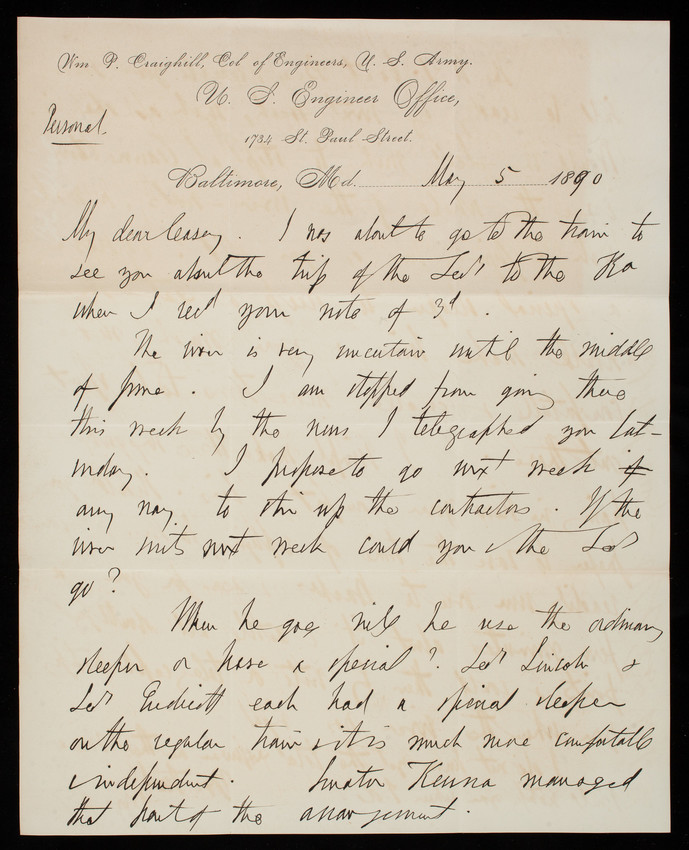 Wm P. Craighill, Col of Engineers, U. S. Army.
U. S. Engineer Office,
Personal.
1734 St. Paul Street.
Baltimore, Md. May 5 1890
My dear Casey. I was about to go to the train to
see you about the trip of the Secy to the Ka
when I recd your note of 3d.
The river is very uncertain until the middle
of June. I am stopped from going there
this week by the news I telegraphed you Sat-
urday. I propose to go next week if
any way to stir up the contractors. If the
river suits next week could you & the Secy
go?
When he goes will he use the ordinary
sleeper or have a special? Secy Lincoln &
Secy Endicott each had a special sleeper
on the regular train & it is much more comfortable
& independent. Senator Kenna managed
that part of the arrangement.